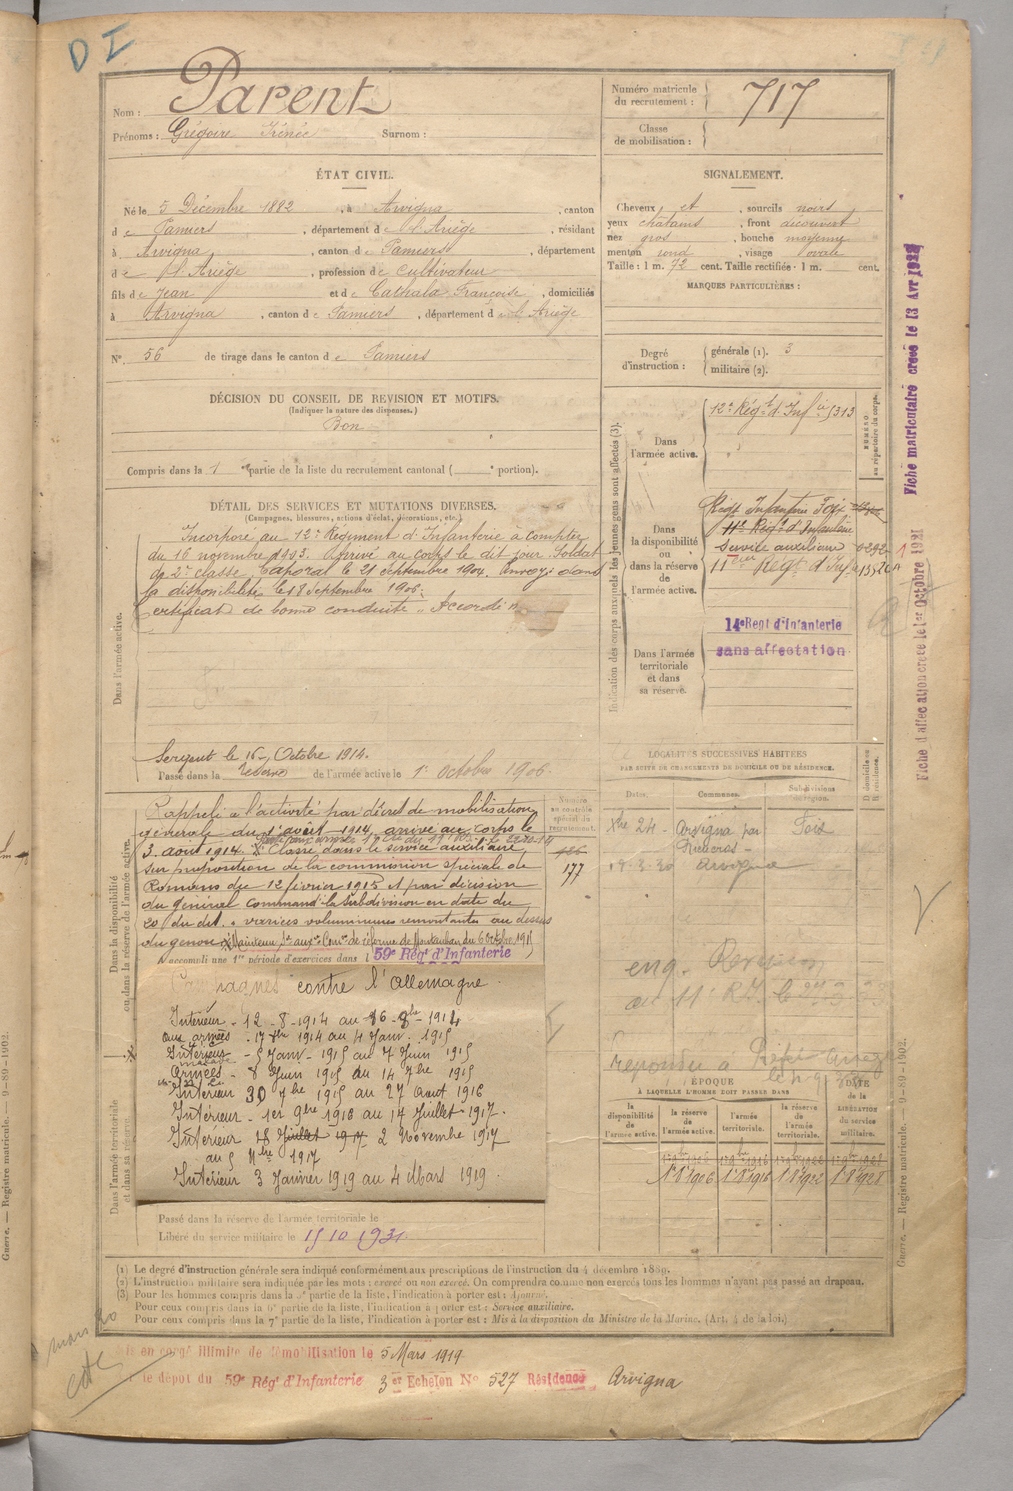 D I
Nom : Parent
Prénoms : Grégoire Irénée Surnom :
Numéro matricule du recrutement : 717
Classe de mobilisation :
ÉTAT CIVIL.
Né le 5 Décembre 1882, à Arvigna, canton
de Pamiers, département de l'Ariège, résidant
à Arvigna, canton de Pamiers, département
de l'Ariège, profession de Cultivateur
fils de Jean et de Cathala Françoise, domiciliés
à Arvigna, canton de Pamiers, département de l'Ariège
N° 56 de tirage dans le canton de Pamiers
SIGNALEMENT.
Cheveux et, sourcils noirs
yeux chatains, front découvert
nez gros, bouche moyenne
menton rond, visage ovale
Taille : 1 m. 72 cent. Taille rectifiée : 1 m. cent.
MARQUES PARTICULIÈRES :
Degré d'instruction : générale (1). 3
militaire (2).
DÉCISION DU CONSEIL DE REVISION ET MOTIFS.
(Indiquer la nature des dispenses.)
Bon
Compris dans la 1 partie de la liste du recrutement cantonal ( portion).
DÉTAIL DES SERVICES ET MUTATIONS DIVERSES.
(Campagnes, blessures, actions d'éclat, décorations, etc.)
Dans l'armée active.
Incorporé au 12e Régiment d'Infanterie à compter
du 16 novembre 1903. Arrivé au corps le dit jour. Soldat
de 2e classe. Caporal le 21 septembre 1904. Envoyé dans
la disponibilité le 18 septembre 1906.
Certificat de bonne conduite "Accordé"
Sergent le 16 Octobre 1914.
Passé dans la réserve de l'armée active le 1er octobre 1906.
Indication des corps auxquels les jeunes gens sont affectés (3).
NUMÉRO au répertoire du corps.
Dans l'armée active.
12e Régt d'Infie 5313
Dans la disponibilité ou dans la réserve de l'armée active.
Régt Infanterie Foix
11e Régt d'Infanterie
Service auxiliaire 0292
11eme Régt d'Infie
Dans l'armée territoriale et dans sa réserve.
14e Regt d'Infanterie
sans affectation
Fiche matriculaire créée le 13 Avr 1922
Fiche d'affectation créée le 1er Octobre 1921
Dans la disponibilité ou dans la réserve de l'armée active.
Rappelé à l'activité par décret de mobilisation
générale du 1er août 1914, arrivé au corps le
3 août 1914. Classé dans le service auxiliaire,
sur proposition de la commission spéciale de
Romans du 12 février 1915 et par décision
du général command. la subdivision en date du
20 du dit. "varices volumineuses remontantes au dessus
du genou" Maintenu Sce auxre Comon de réforme de Montauban du 6 Octobre 191
A accompli une 1re période d'exercices dans l 59e Rég' d'Infanterie
Numéro au contrôle spécial du recrutement.
177
Campagnes contre l'Allemagne.
Intérieur - 12-8-1914 au 16-8bre 1914
aux armées - 17 8bre 1914 au 4 Janv. 1915
Intérieur - 5 Janv - 1915 au 7 Juin 1915
Armées - 8 Juin 1915 au 14 7bre 1915
Intérieur 30 7bre 1915 au 27 août 1916
Intérieur - 1er 9bre 1916 au 17 Juillet - 1917.
Intérieur 18 Juillet 1917 2 Novembre 1917
au 5 Nbre 1917
Intérieur 3 Janvier 1919 au 4 Mars 1919.
Dans l'armée territoriale et dans sa réserve.
Passé dans la réserve de l'armée territoriale le
Libéré du service militaire le 15 10 1931
LOCALITÉS SUCCESSIVES HABITÉES
PAR SUITE DE CHANGEMENTS DE DOMICILE OU DE RÉSIDENCE.
Dates. Communes. Subdivisions de région. D domicile ou R résidence.
Xbre 24 - Arvigna par Foix
Arvigna
eng. Revision
ÉPOQUE
À LAQUELLE L'HOMME DOIT PASSER DANS
la disponibilité de l'armée active.
la réserve de l'armée active.
l'armée territoriale.
la réserve de l'armée territoriale.
DATE de la LIBÉRATION du service militaire.
(1) Le degré d'instruction générale sera indiqué conformément aux prescriptions de l'instruction du 4 décembre 1889.
(2) L'instruction militaire sera indiquée par les mots : exercé ou non exercé. On comprendra comme non exercés tous les hommes n'ayant pas passé au drapeau.
(3) Pour les hommes compris dans la 5e partie de la liste, l'indication à porter est : Ajourné.
Pour ceux compris dans la 6e partie de la liste, l'indication à porter est : Service auxiliaire.
Pour ceux compris dans la 7e partie de la liste, l'indication à porter est : Mis à la disposition du Ministre de la Marine. (Art. 4 de la loi.)
Guerre. — Registre matricule. — 9-89-1902.
Guerre. — Registre matricule. 9-89-1902.
is en congé illimité de démobilisation le 5 Mars 1919
le dépôt du 59e Rég' d'Infanterie 3er Echelon N° 527 Résidence Arvigna